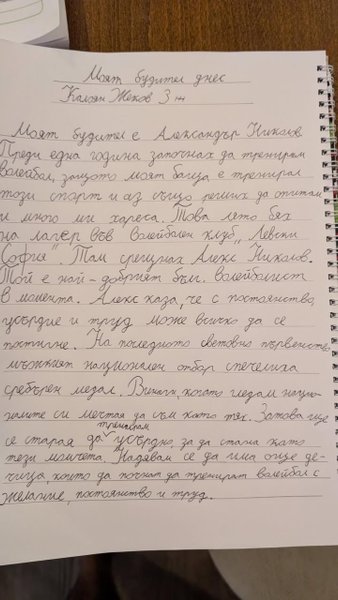 Моят будител днес
Калоян Жеков 3 ж
Моят будител е Александър Николов
Преди една година започнах да тренирам
волейбол, защото моят баща е тренирал
този спорт и аз също реших да опитам
и много ми хареса. Това лято бях
на лагер във Волейболен клуб „Левски
София". Там срещнах Алекс Николов.
Той е най-добрият бълг. волейболист
в момента. Алекс каза, че с постоянство,
усърдие и труд може всичко да се
постигне. На последното световно първенство
мъжкият национален отбор спечелиха
сребърен медал. Винаги, когато гледам нацио-
налите си мечтая да съм като тях. Затова ще
тренирам
се старая да усърдно, за да стана като
тези момчета. Надявам се да има още де-
чица, които да почнат да тренират волейбол с
желание, постоянство и труд.